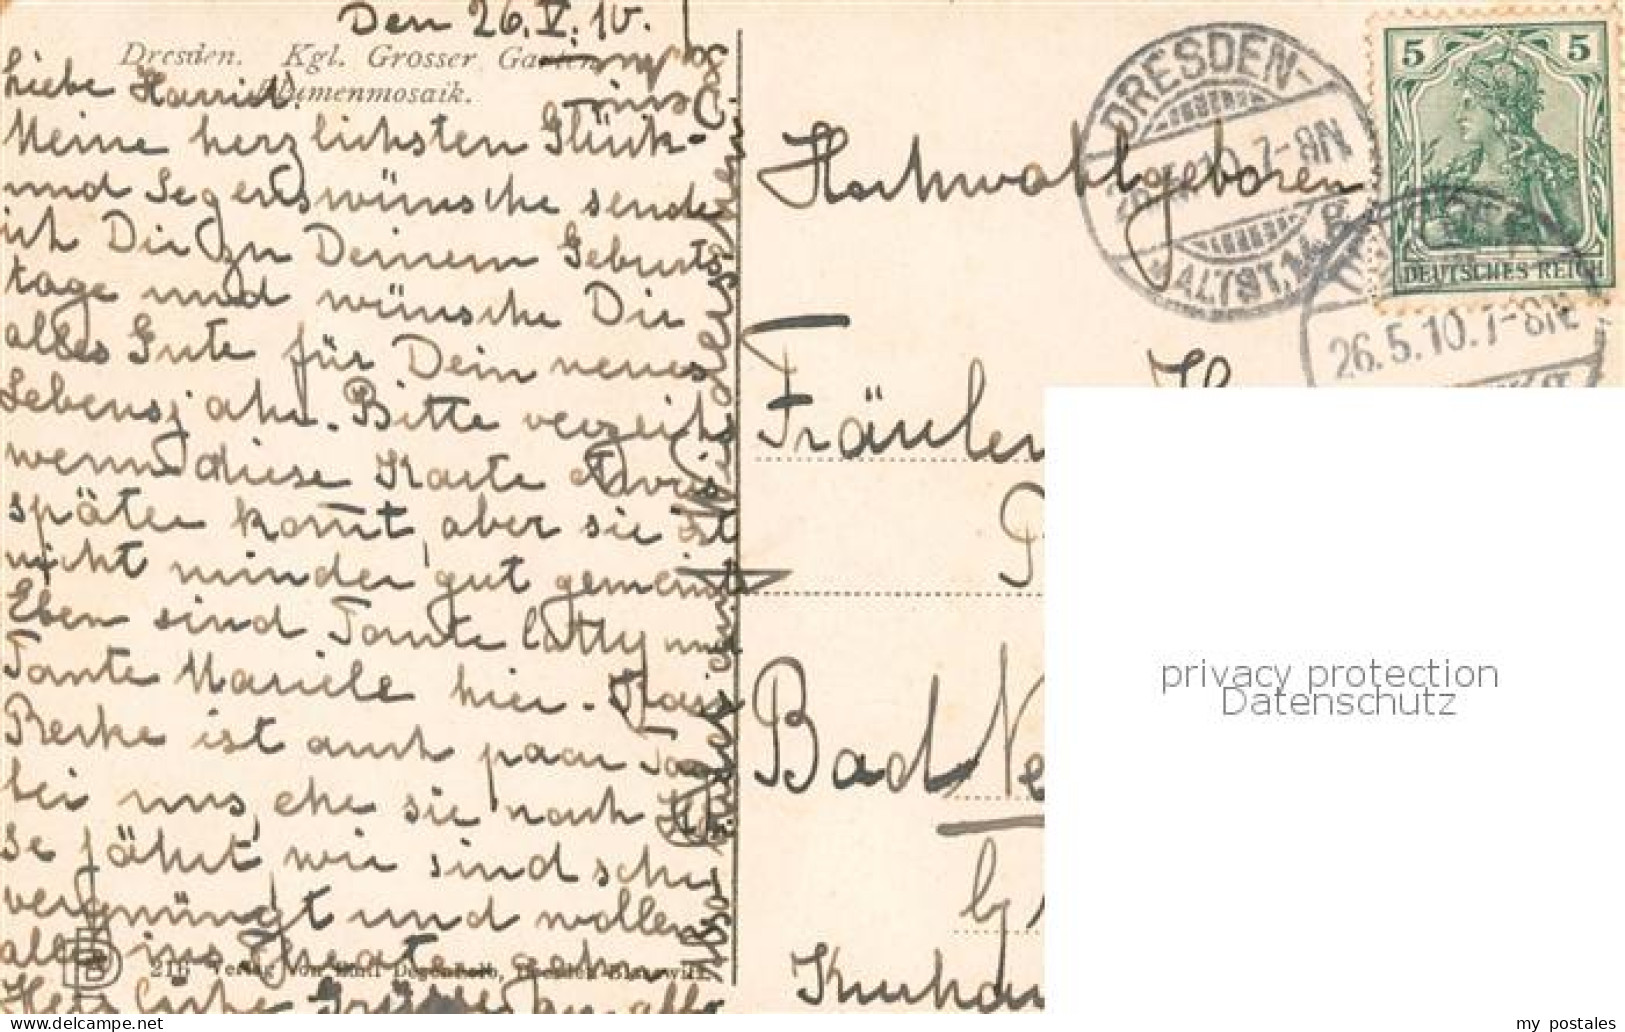 Den 26.V.10.
Dresden. Kgl. Grosser Garten
Blumenmosaik.
Liebe Harriet,
Meine herzlichsten Glück-
und Segenswünsche sende
ich Dir zu Deinem Geburts
tage und wünsche Dir
alles Gute für Dein neues
Lebensjahr. Bitte verzeih
wenn diese Karte etwas
später kommt, aber sie ist
nicht minder gut gemeint
Eben sind Tante Catty und
Tante Mariele hier.
ist auch paar Tage
bei uns, ehe sie nach
se fährt, wir sind sehr
vergnüngt und wollen
alle ins Theater gehn
Herzliche Grüsse an alle
216 Verlag von Emil Degenkolb, Dresden-Blasewitz.
Hochwohlgeboren
Fräulein
Bad Ne
b/
Kurhau
DRESDEN-
26.5.10. 7-8N
ALTST. 14
26.5.10. 7-8N
5 5
DEUTSCHES REICH
privacy protection
Datenschutz
my_postales